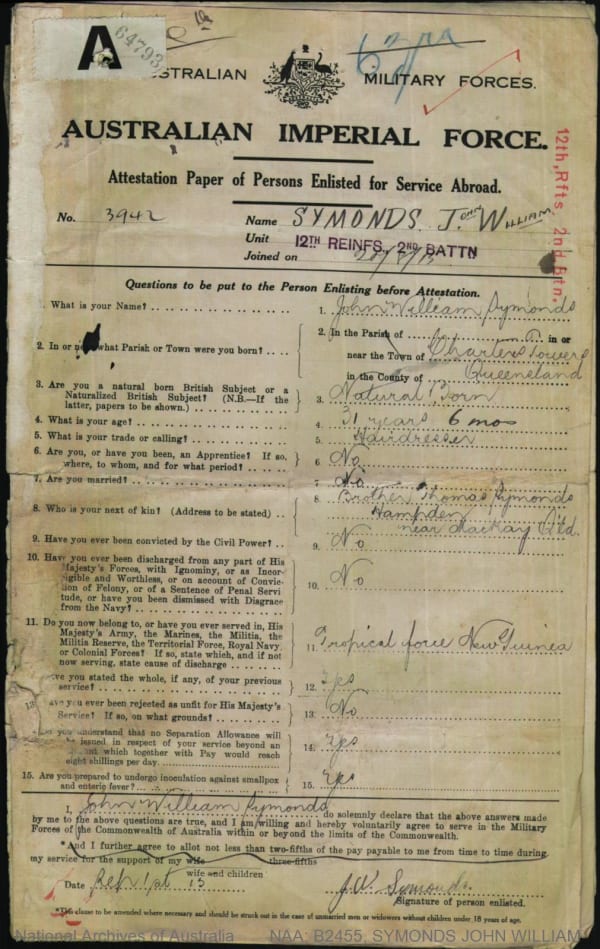 A
64793
AUSTRALIAN MILITARY FORCES.
AUSTRALIAN IMPERIAL FORCE.
Attestation Paper of Persons Enlisted for Service Abroad.
12th, Rfts 2nd. Btn.
No. 3942 Name SYMONDS. John WILLIAM
Unit 12TH REINFS. 2ND BATTN
Joined on
Questions to be put to the Person Enlisting before Attestation.
1. What is your Name? 1. John William Symonds
2. In or near what Parish or Town were you born? 2. In the Parish of in or
near the Town of Charters Towers
in the County of Queensland
3. Are you a natural born British Subject or a
Naturalized British Subject? (N.B.—If the
latter, papers to be shown.) 3. Natural Born
4. What is your age? 4. 31 years 6 mos
5. What is your trade or calling? 5. Hairdresser
6. Are you, or have you been, an Apprentice? If so,
where, to whom, and for what period? 6 No
7. Are you married? 7. No
8. Who is your next of kin? (Address to be stated) 8. Brother Thomas Symonds
Hampden
near Mackay Qld.
9. Have you ever been convicted by the Civil Power? 9. No
10. Have you ever been discharged from any part of His
Majesty's Forces, with Ignominy, or as Incor-
rigible and Worthless, or on account of Convic-
tion of Felony, or of a Sentence of Penal Servi-
tude, or have you been dismissed with Disgrace
from the Navy? 10. No
11. Do you now belong to, or have you ever served in, His
Majesty's Army, the Marines, the Militia, the
Militia Reserve, the Territorial Force, Royal Navy
or Colonial Forces? If so, state which, and if not
now serving, state cause of discharge 11. Tropical force New Guinea
Have you stated the whole, if any, of your previous
service? 12. Yes
13. Have you ever been rejected as unfit for His Majesty's
Service? If so, on what grounds? 13. No
Do you understand that no Separation Allowance will
be issued in respect of your service beyond an
amount which together with Pay would reach
eight shillings per day. 14. Yes
15. Are you prepared to undergo inoculation against smallpox
and enteric fever? 15. Yes
I, John William Symonds do solemnly declare that the above answers made
by me to the above questions are true, and I am willing and hereby voluntarily agree to serve in the Military
Forces of the Commonwealth of Australia within or beyond the limits of the Commonwealth.
*And I further agree to allot not less than two-fifths of the pay payable to me from time to time during
three-fifths
my service for the support of my wife
wife and children
Date Sep 1st 15 J.W. Symonds
Signature of person enlisted.
*This clause to be amended where necessary and should be struck out in the case of unmarried men or widowers without children under 18 years of age.
National Archives of Australia NAA: B2455, SYMONDS JOHN WILLIAM